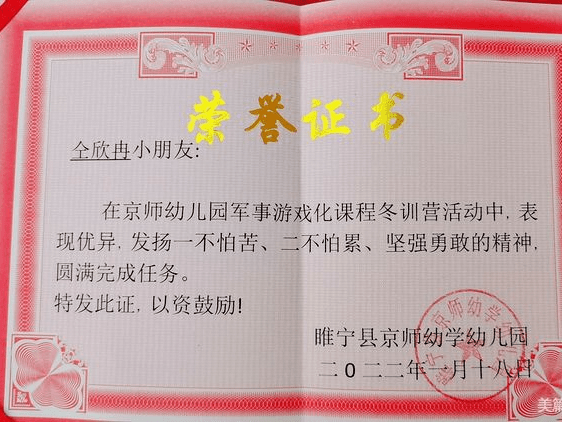 荣誉证书
仝欣冉小朋友:
在京师幼儿园军事游戏化课程冬训营活动中, 表
现优异, 发扬一不怕苦、二不怕累、坚强勇敢的精神,
圆满完成任务。
特发此证, 以资鼓励!
睢宁县京师幼学幼儿园
二0二二年一月十八日
美篇